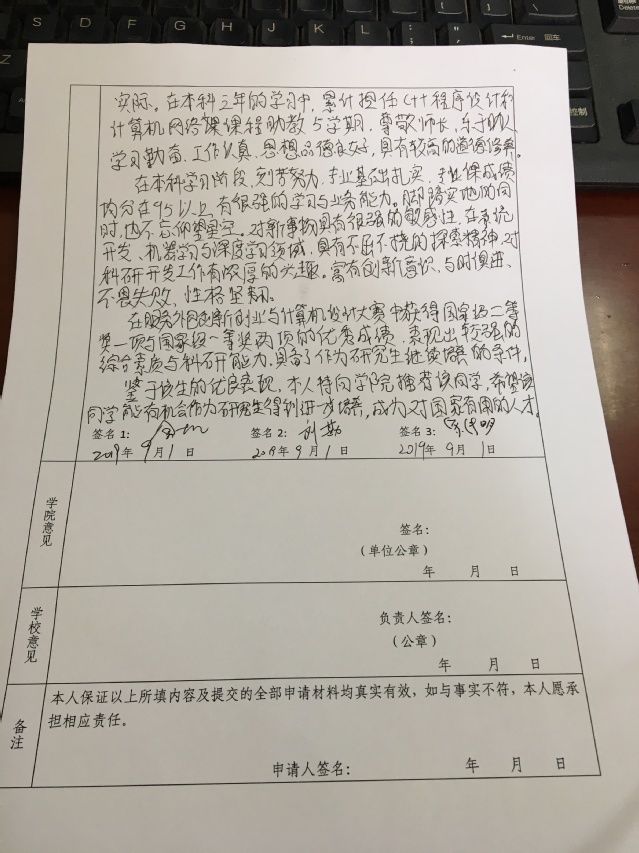 实际。在本科三年的学习中，累计担任C++程序设计和
计算机网络课课程助教5学期，尊敬师长，乐于助人
学习勤奋、工作认真、思想品德良好，具有较高的道德修养。
在本科学习阶段，刻苦努力，专业基础扎实，专业课成绩
均分在95以上，有很强的学习与业务能力。脚踏实地的同
时，也不忘仰望星空。对新事物具有很强的敏感性，在系统
开发、机器学习与深度学习领域，具有不屈不挠的探索精神，对
科研开发工作有浓厚的兴趣。富有创新意识、与时俱进、
不畏失败，性格坚韧。
在服务外包创新创业与计算机设计大赛中获得国家级二等
奖一项与国家级一等奖两项的优秀成绩，表现出较强的
综合素质与科研能力，具备了作为研究生继续培养的条件，
鉴于该生的优良表现，本人特向学院推荐该同学，希望该
同学能有机会作为研究生得到进一步培养，成为对国家有用的人才。
签名1： 签名2： 签名3：
2019年9月1日 2019年9月1日 2019年9月1日
学院意见
签名：
（单位公章）
年 月 日
学校意见
负责人签名：
（公章）
年 月 日
备注
本人保证以上所填内容及提交的全部申请材料均真实有效，如与事实不符，本人愿承
担相应责任。
申请人签名： 年 月 日
Enter 回车
Delete
控制